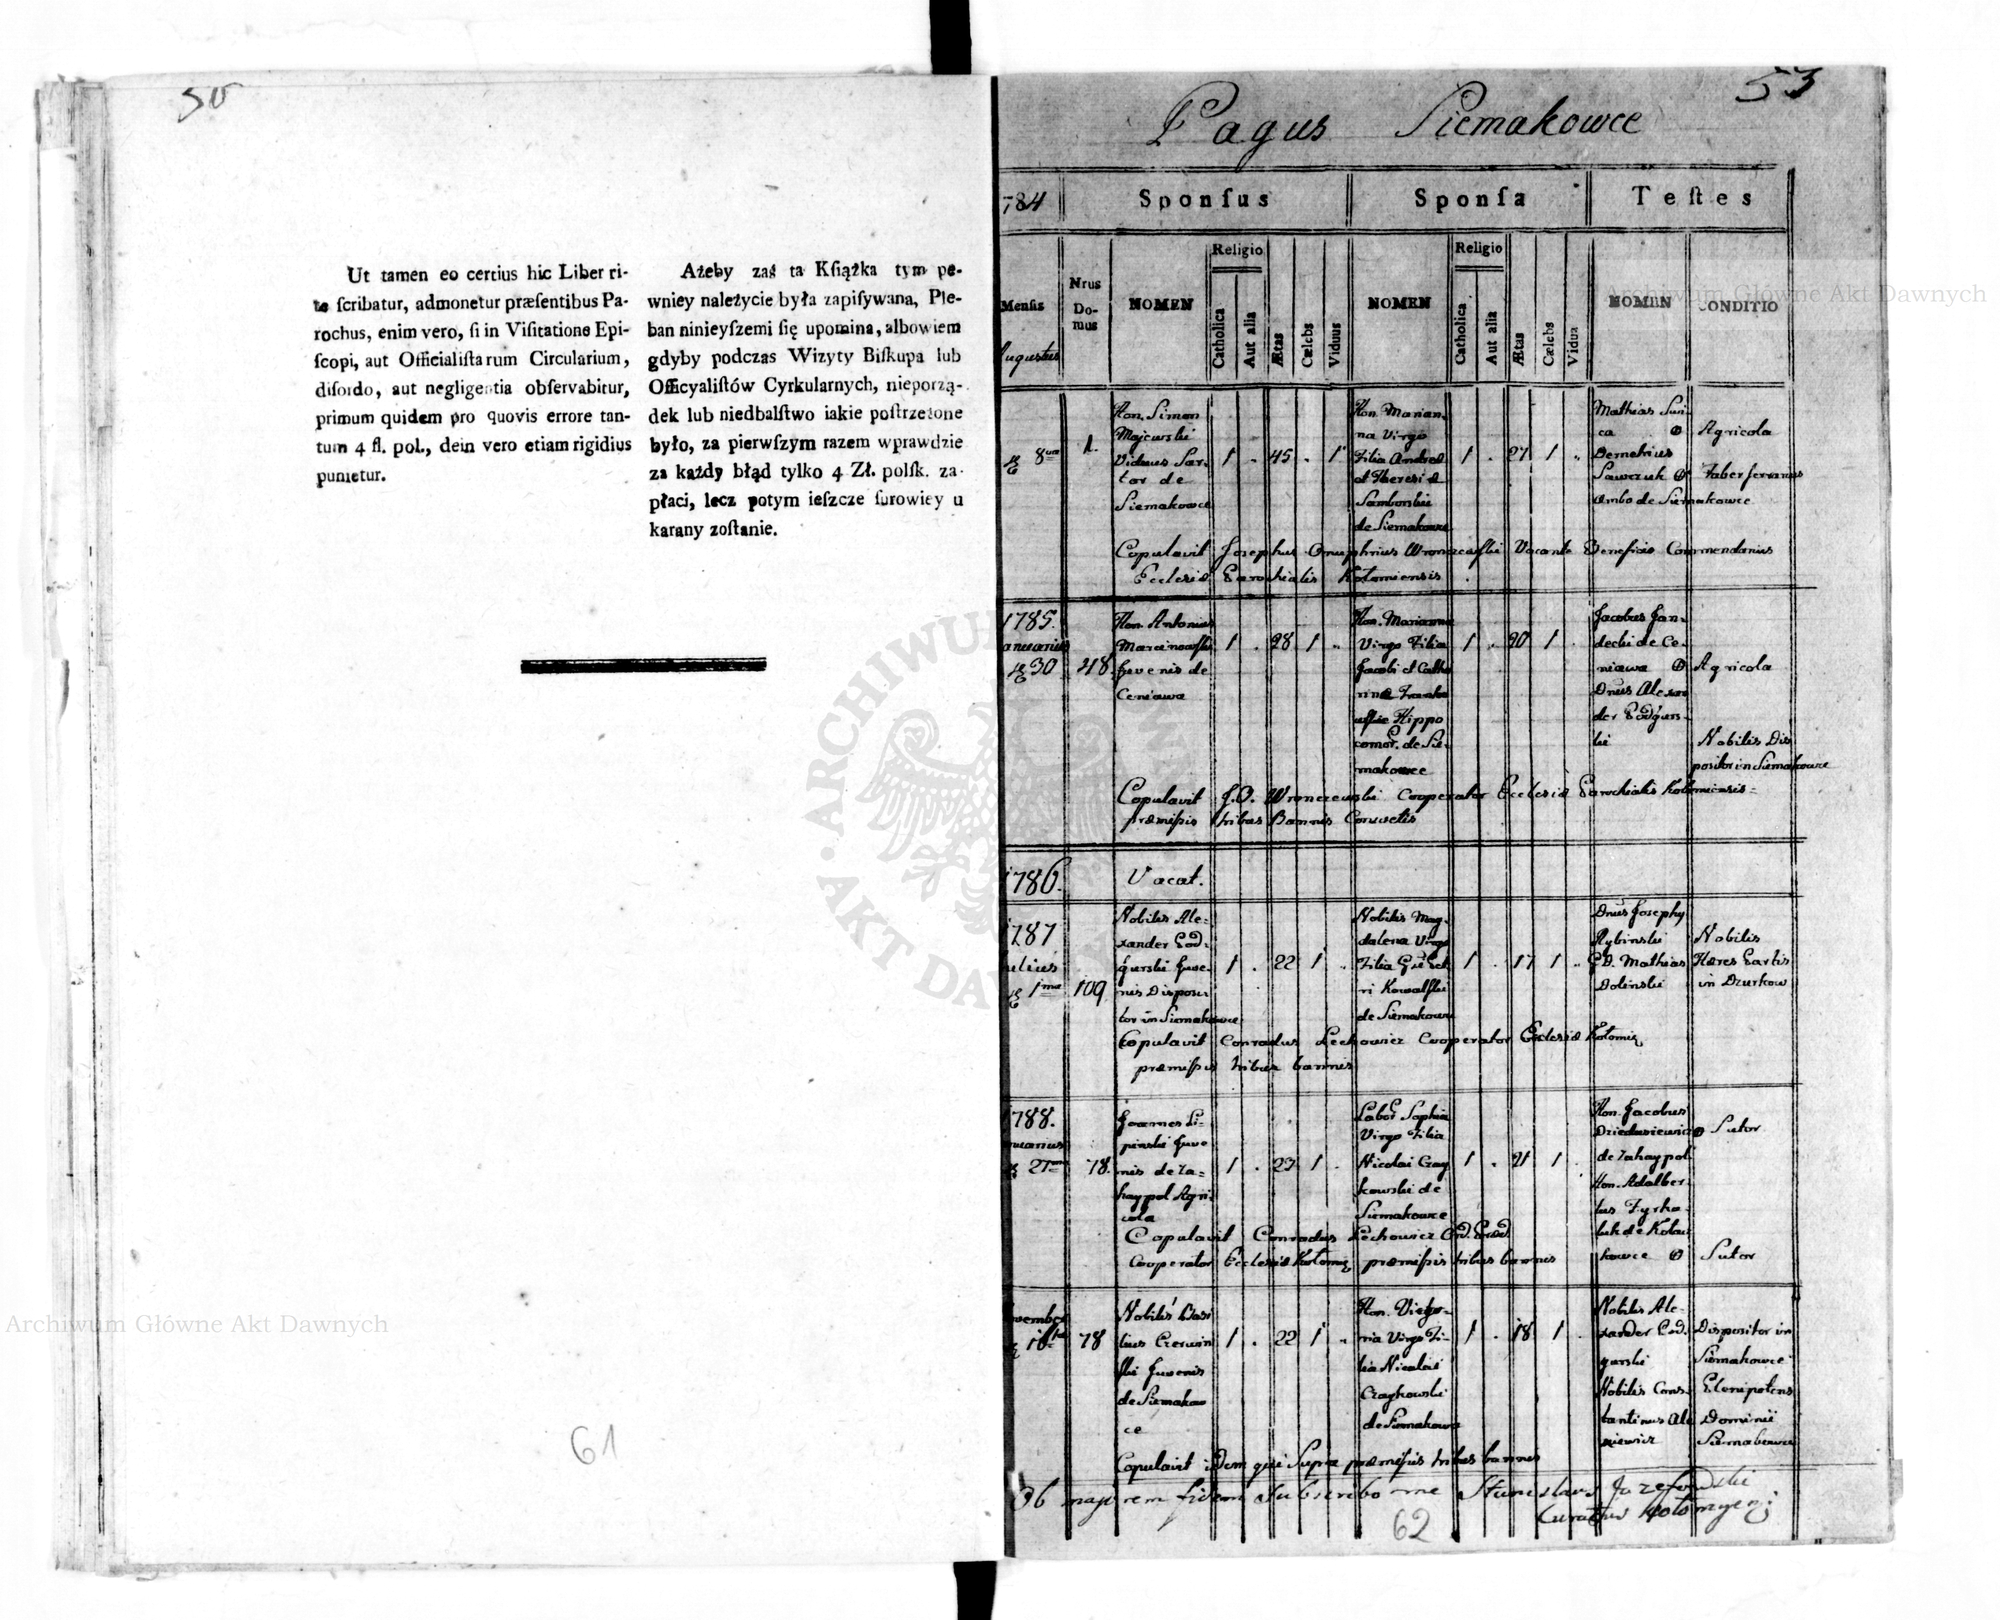 50
Ut tamen eo certius hic Liber ri-
te ſcribatur, admonetur præſentibus Pa-
rochus, enim vero, ſi in Viſitatione Epi-
ſcopi, aut Officialiſtarum Circularium,
diſordo, aut negligentia obſervabitur,
primum quidem pro quovis errore tan-
tum 4 fl. pol., dein vero etiam rigidius
punietur.
Ażeby zaś ta Kſiążka tym pe-
wniey należycie była zapiſywana, Ple-
ban ninieyſzemi się upomina, albowiem
gdyby podczas Wizyty Biſkupa lub
Officyaliſtów Cyrkularnych, nieporzą-
dek lub niedbalſtwo iakie poſtrzeżone
było, za pierwſzym razem wprawdzie
za każdy błąd tylko 4 Zł. polſk. za-
płaci, lecz potym ieſzcze ſurowiey u
karany zoſtanie.
61
53
Pagus Siemakowce
784
Sponſus
Sponſa
Teſtes
Menſis
Nrus
Do-
mus
NOMEN
Religio
Catholica
Aut alia
Ætas
Cælebs
Viduus
NOMEN
Religio
Catholica
Aut alia
Ætas
Cælebs
Vidua
NOMEN
CONDITIO
ugustus
8va
1.
Hon. Simon
Majewski
Viduus Sar-
tor de
Siemakowce
1 . 45 . 1
Hon. Marian-
na Virgo
Filia Andreæ
et Theresiæ
Samborski
de Siemakowce
1 . 27 1 .
Mathias
Agricola
Demetrius
Sawczuk
Faber ferrarius
ambo de Siemakowce
Copulavit Josephus Onuphrius Wronczewski Vacante Beneficio Commendarius
Ecclesiæ Parochialis Kołomiensis
1785.
anuarius
30
48.
Hon. Antonius
Juvenis de
Ceniawa
1 . 28 1 .
Hon. Marianna
Virgo Filia
Jacobi et Catha
rinæ
Hippo
de Sie-
makowce
1 . 20 1 .
Jacobus Jan-
decki de Ce-
niawa
Agricola
Dnus Alexan
der Podgurs-
ki
Nobilis Dis
positor in Siemakowce
Copulavit J. O. Wronczewski Cooperator Ecclesiæ Parochialis Kołomiensis
præmiſsis tribus Bannis Consuetis
1786.
Vacat.
1787
ulius
1ma
109
Nobilis Ale-
xander Pod-
gurski Juve-
nis Disposi
tor in Siemakowce
1 . 22 1 .
Nobilis Mag-
dalena Virgo
Filia
Kowalski
de Siemakowce
1 . 17 1 .
Dnus Josephus
Rybinski
Nobilis
Mathias
Dolinski
Hæres Partis
in Dzurkow
Copulavit Conradus Lechowicz Cooperator Ecclesiæ Kołomie
præmiſsis tribus bannis
1788.
nuarius
21ma
78.
Joannes Li-
pinski Juve
nis de Za-
haypol Agri-
cola
1 . 23 1 .
Sophia
Virgo Filia
Nicolai Czay
kowski de
Siemakowce
1 . 21 1 .
Hon. Jacobus
Dziedusiewicz
Sutor
de Zahaypol
Hon. Adalber
tus
Sutor
Copulavit Conradus Lechowicz
Cooperator Ecclesiæ Kołomie præmiſsis tribus bannis
vember
16
78
Nobilis Basi
lius Czerwin
ski Juvenis
de Siemakow
ce
1 . 22 1 .
Hon. Victo-
ria Virgo Fi-
lia Nicolai
Czaykowski
de Siemakowce
1 . 18 1 .
Nobilis Ale-
xander Pod-
gurski
Dispositor in
Siemakowce
Nobilis Cons-
tantinus
Plenipotens
Dominii
Siemakowce
Copulavit idem qui supra præmiſsis tribus bannis
Ob majorem fidem Subscribo me Stanislaus Jozefowski
Curatus Kołomyen:
62
Archiwum Główne Akt Dawnych
Archiwum Główne Akt Dawnych